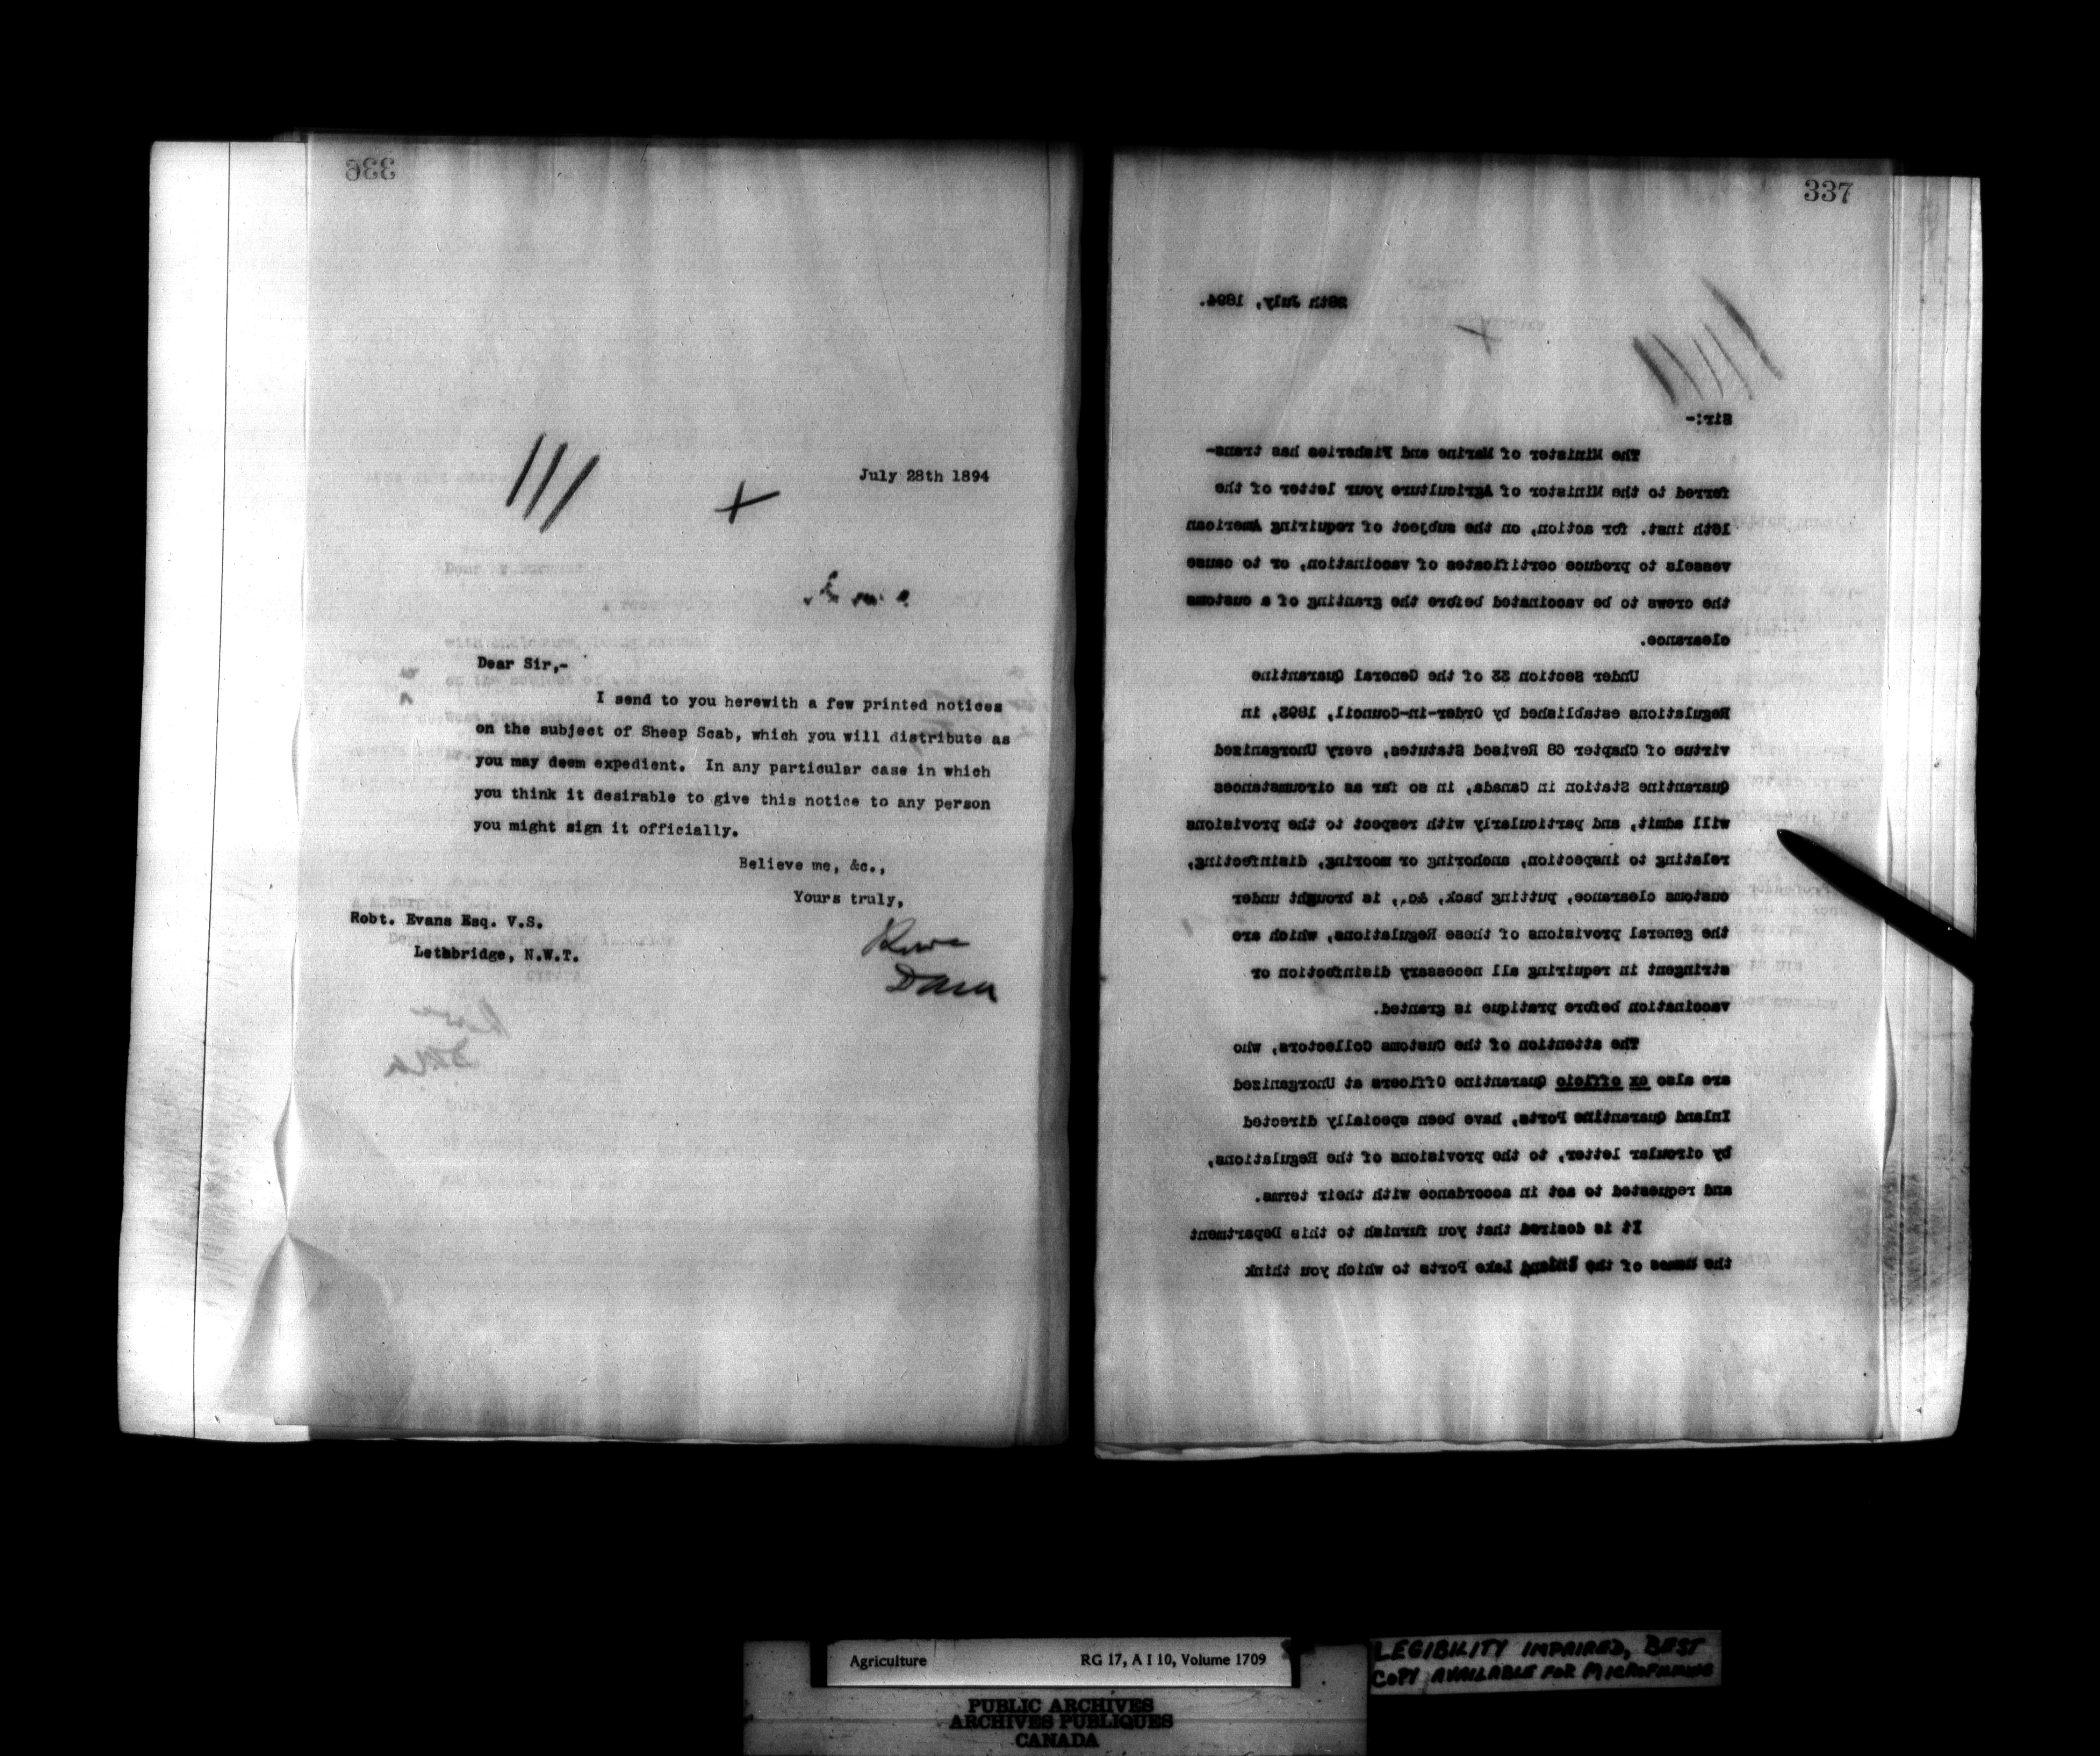 336
July 28th 1894
Dear Sir,-
I send to you herewith a few printed notices
on the subject of Sheep Scab, which you will distribute as
you may deem expedient. In any particular case in which
you think it desirable to give this notice to any person
you might sign it officially.
Believe me, &c.,
Yours truly,
Robt. Evans Esq. V.S.
Lethbridge, N.W.T.
337
28th July, 1894.
Sir:-
The Minister of Marine and Fisheries has trans-
ferred to the Minister of Agriculture your letter of the
16th inst. for action, on the subject of requiring American
vessels to produce certificates of vaccination, or to cause
the crews to be vaccinated before the granting of a customs
clearance.
Under Section 33 of the General Quarantine
Regulations established by Order-in-Council, 1893, in
virtue of Chapter 68 Revised Statutes, every Unorganized
Quarantine Station in Canada, in so far as circumstances
will admit, and particularly with respect to the provisions
relating to inspection, anchoring or mooring, disinfecting,
customs clearance, putting back, &c., is brought under
the general provisions of these Regulations, which are
stringent in requiring all necessary disinfection or
vaccination before pratique is granted.
The attention of the Customs Collectors, who
are also ex officio Quarantine Officers at Unorganized
Inland Quarantine Ports, have been specially directed
by circular letter, to the provisions of the Regulations,
and requested to act in accordance with their terms.
It is desired that you furnish to this Department
the names of the Inland Lake Ports to which you think
Agriculture RG 17, A I 10, Volume 1709
LEGIBILITY IMPAIRED, BEST
COPY AVAILABLE FOR MICROFILMING
PUBLIC ARCHIVES
ARCHIVES PUBLIQUES
CANADA